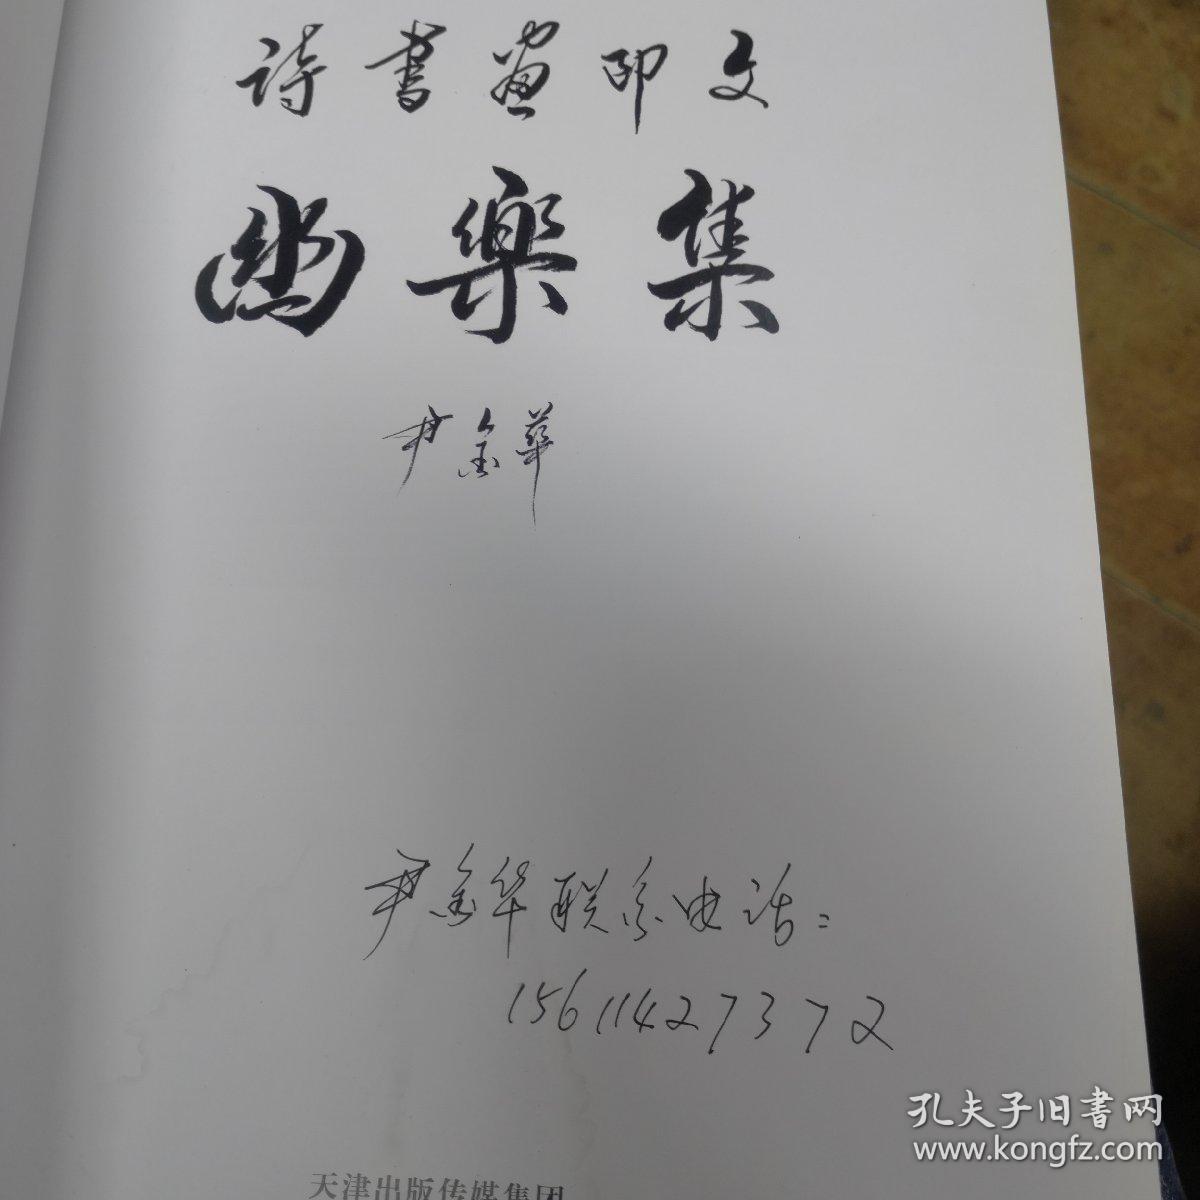 詩書画印文
幽樂集
尹金華
尹金华联系电话：
15611427372
天津出版传媒集团
孔夫子旧书网
www.kongfz.com